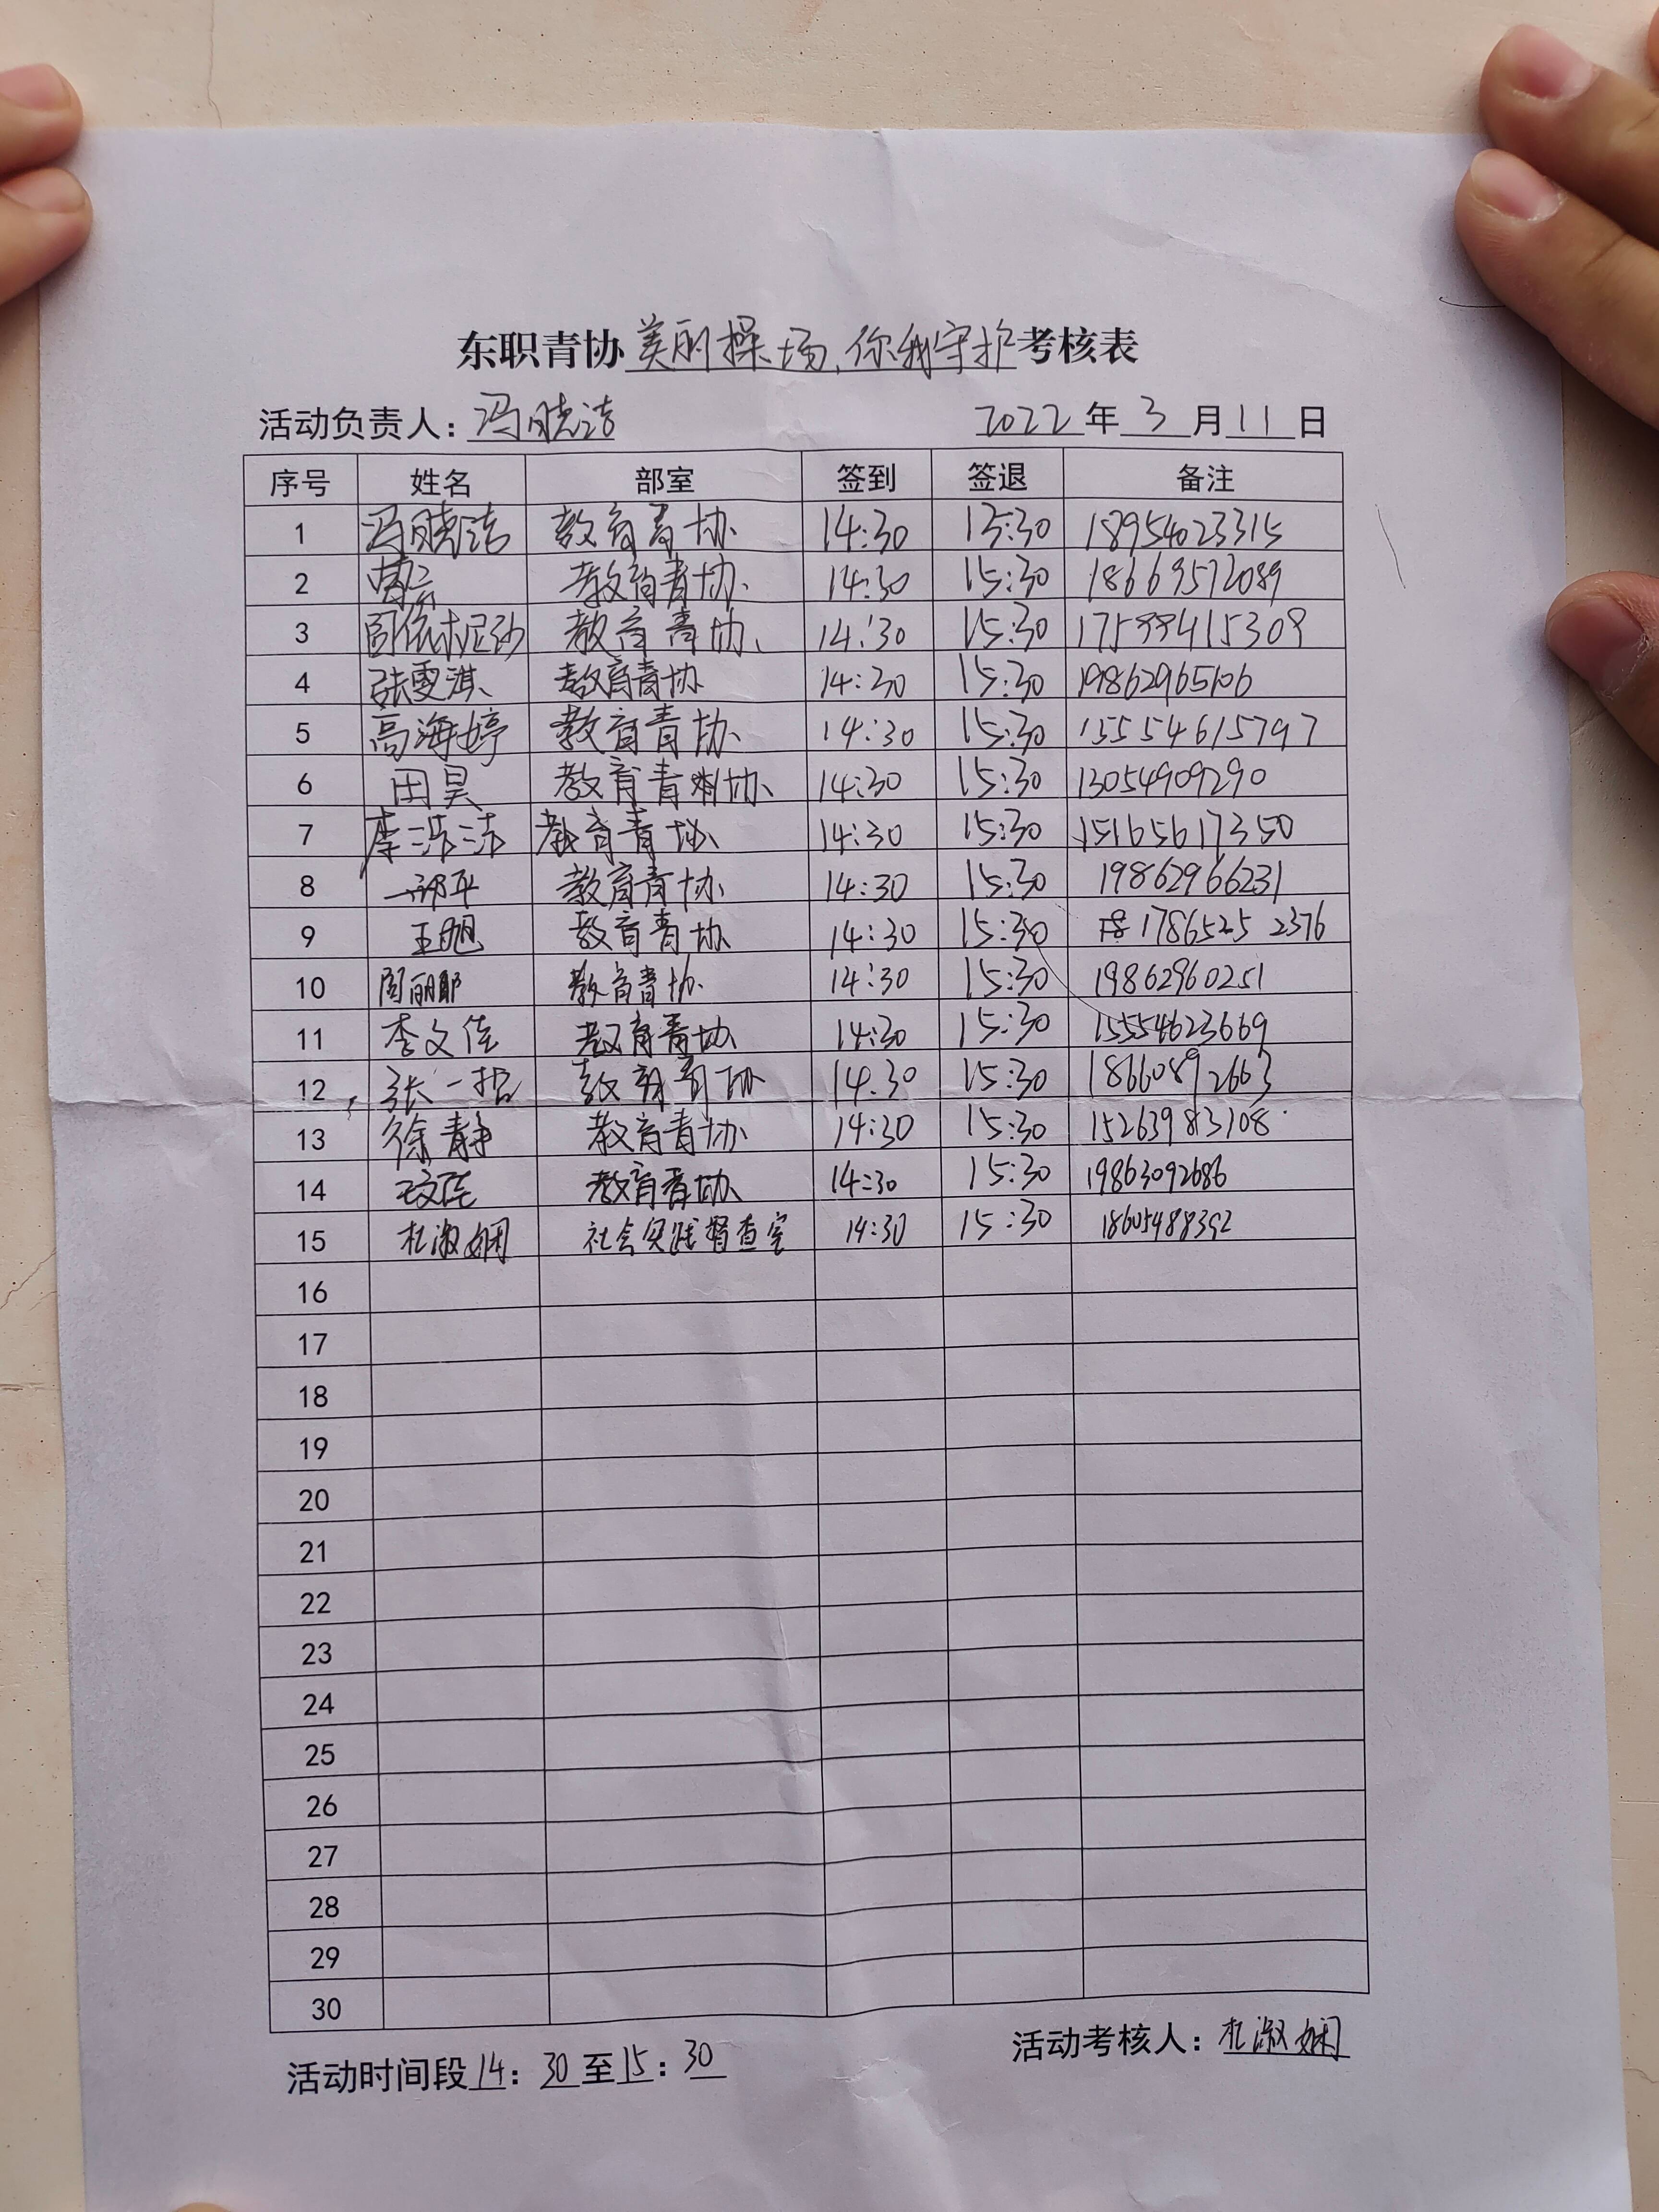 东职青协美丽操场,你我守护考核表
活动负责人：冯晓洁 2022年3月11日
序号 姓名 部室 签到 签退 备注
1 冯晓洁 教育青协 14:30 15:30 18954023315
2 教育青协 14:30 15:30 18669572089
3 教育青协 14:30 15:30
4 张雯淇 教育青协 14:30 15:30
5 高海婷 教育青协 14:30 15:30 15554615797
6 田昊 教育青协 14:30 15:30 13054909290
7 李洁洁 教育青协 14:30 15:30 15165617350
8 教育青协 14:30 15:30 19862966231
9 王旭 教育青协 14:30 15:30 1786525 2376
10 教育青协 14:30 15:30 19862960251
11 李文佳 教育青协 14:30 15:30 15554623669
12 张一 教育青协 14:30 15:30 18660892663
13 徐静 教育青协 14:30 15:30 15263983108
14 教育青协 14:30 15:30 19863092686
15 杜淑娴 社会实践督查室 14:30 15:30 18605488392
16
17
18
19
20
21
22
23
24
25
26
27
28
29
30
活动时间段14：30至15：30 活动考核人：杜淑娴